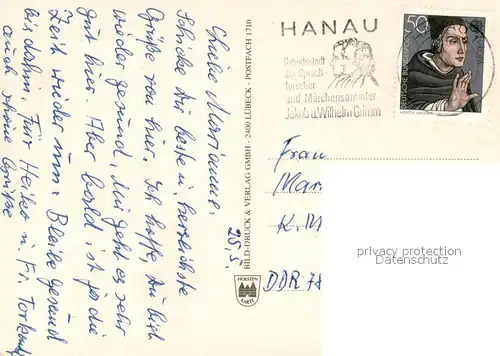 Liebe Marianne!
28.5.
Schicke dir beste u. herzlichste
Grüße von hier. Ich hoffe, du bist
wieder gesund, mir geht es sehr
gut hier. Aber bald ist ja die
Zeit wieder um. Bleibe gesund
bis dahin. Für Heiko u. Fr.
auch schöne Grüße
BILD-DRUCK & VERLAG GMBH · 2400 LÜBECK · POSTFACH 1710
HOLSTEN
KARTE
HANAU
Geburtsstadt
der Sprach-
forscher
und Märchensammler
Jakob u. Wilhelm Grimm
50
DEUTSCHE
Frau
Mar
K. M
DDR 78
privacy protection
Datenschutz